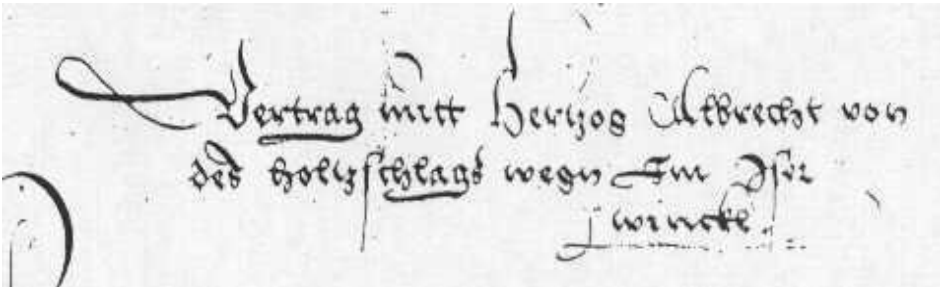 Vertrag mitt Hertzog Albrecht von
des holtzschlags wegn Im Iser
winckl.